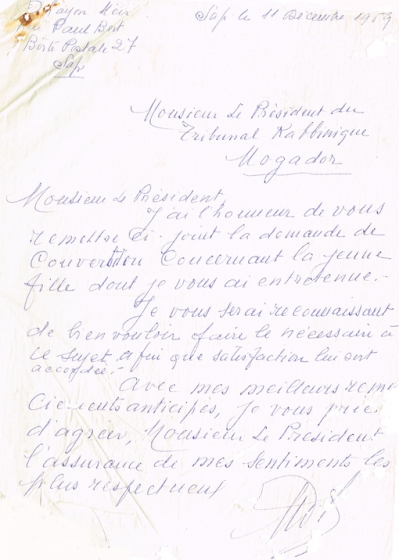 Paul Bert
Boîte Postale 27
Safi
Safi le 11 Décembre 1959
Monsieur Le Président du
Tribunal Rabbinique
Mogador
Monsieur Le Président,
J'ai l'honneur de vous
remettre ci-joint la demande de
Conversion concernant la jeune
fille dont je vous ai entretenue.-
Je vous serai reconnaissant
de bien vouloir faire le nécessaire à
ce sujet, afin que satisfaction lui ont
accordée.-
Avec mes meilleurs reme
ciements anticipés, je vous prie
d'agréer, Monsieur Le Président
l'assurance de mes sentiments les
plus respectueux